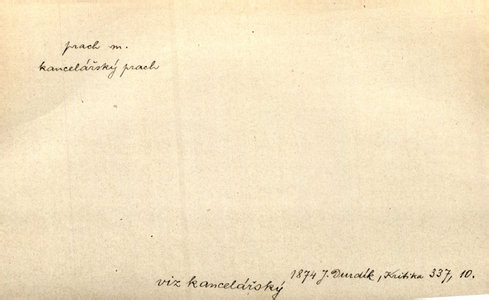 prach m.
kancelářský prach
1874 J. Durdík, Kritika 337, 10.
viz kancelářský